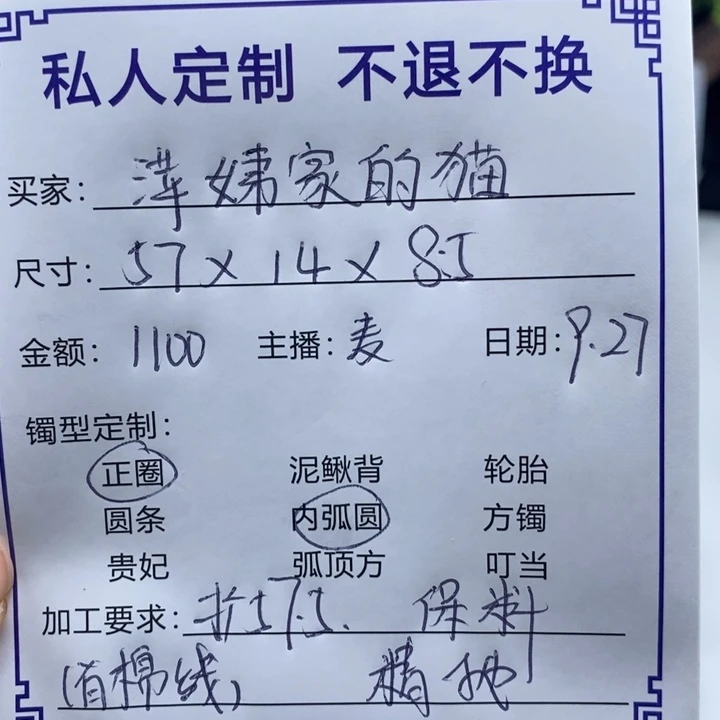 私人定制 不退不换
买家: 萍姨家的猫
尺寸: 57×14×8.5
金额: 1100 主播: 麦 日期: 9.27
镯型定制:
正圈 泥鳅背 轮胎
圆条 内弧圆 方镯
贵妃 弧顶方 叮当
加工要求: 扩57.5. 保料
(有棉线) 精抛